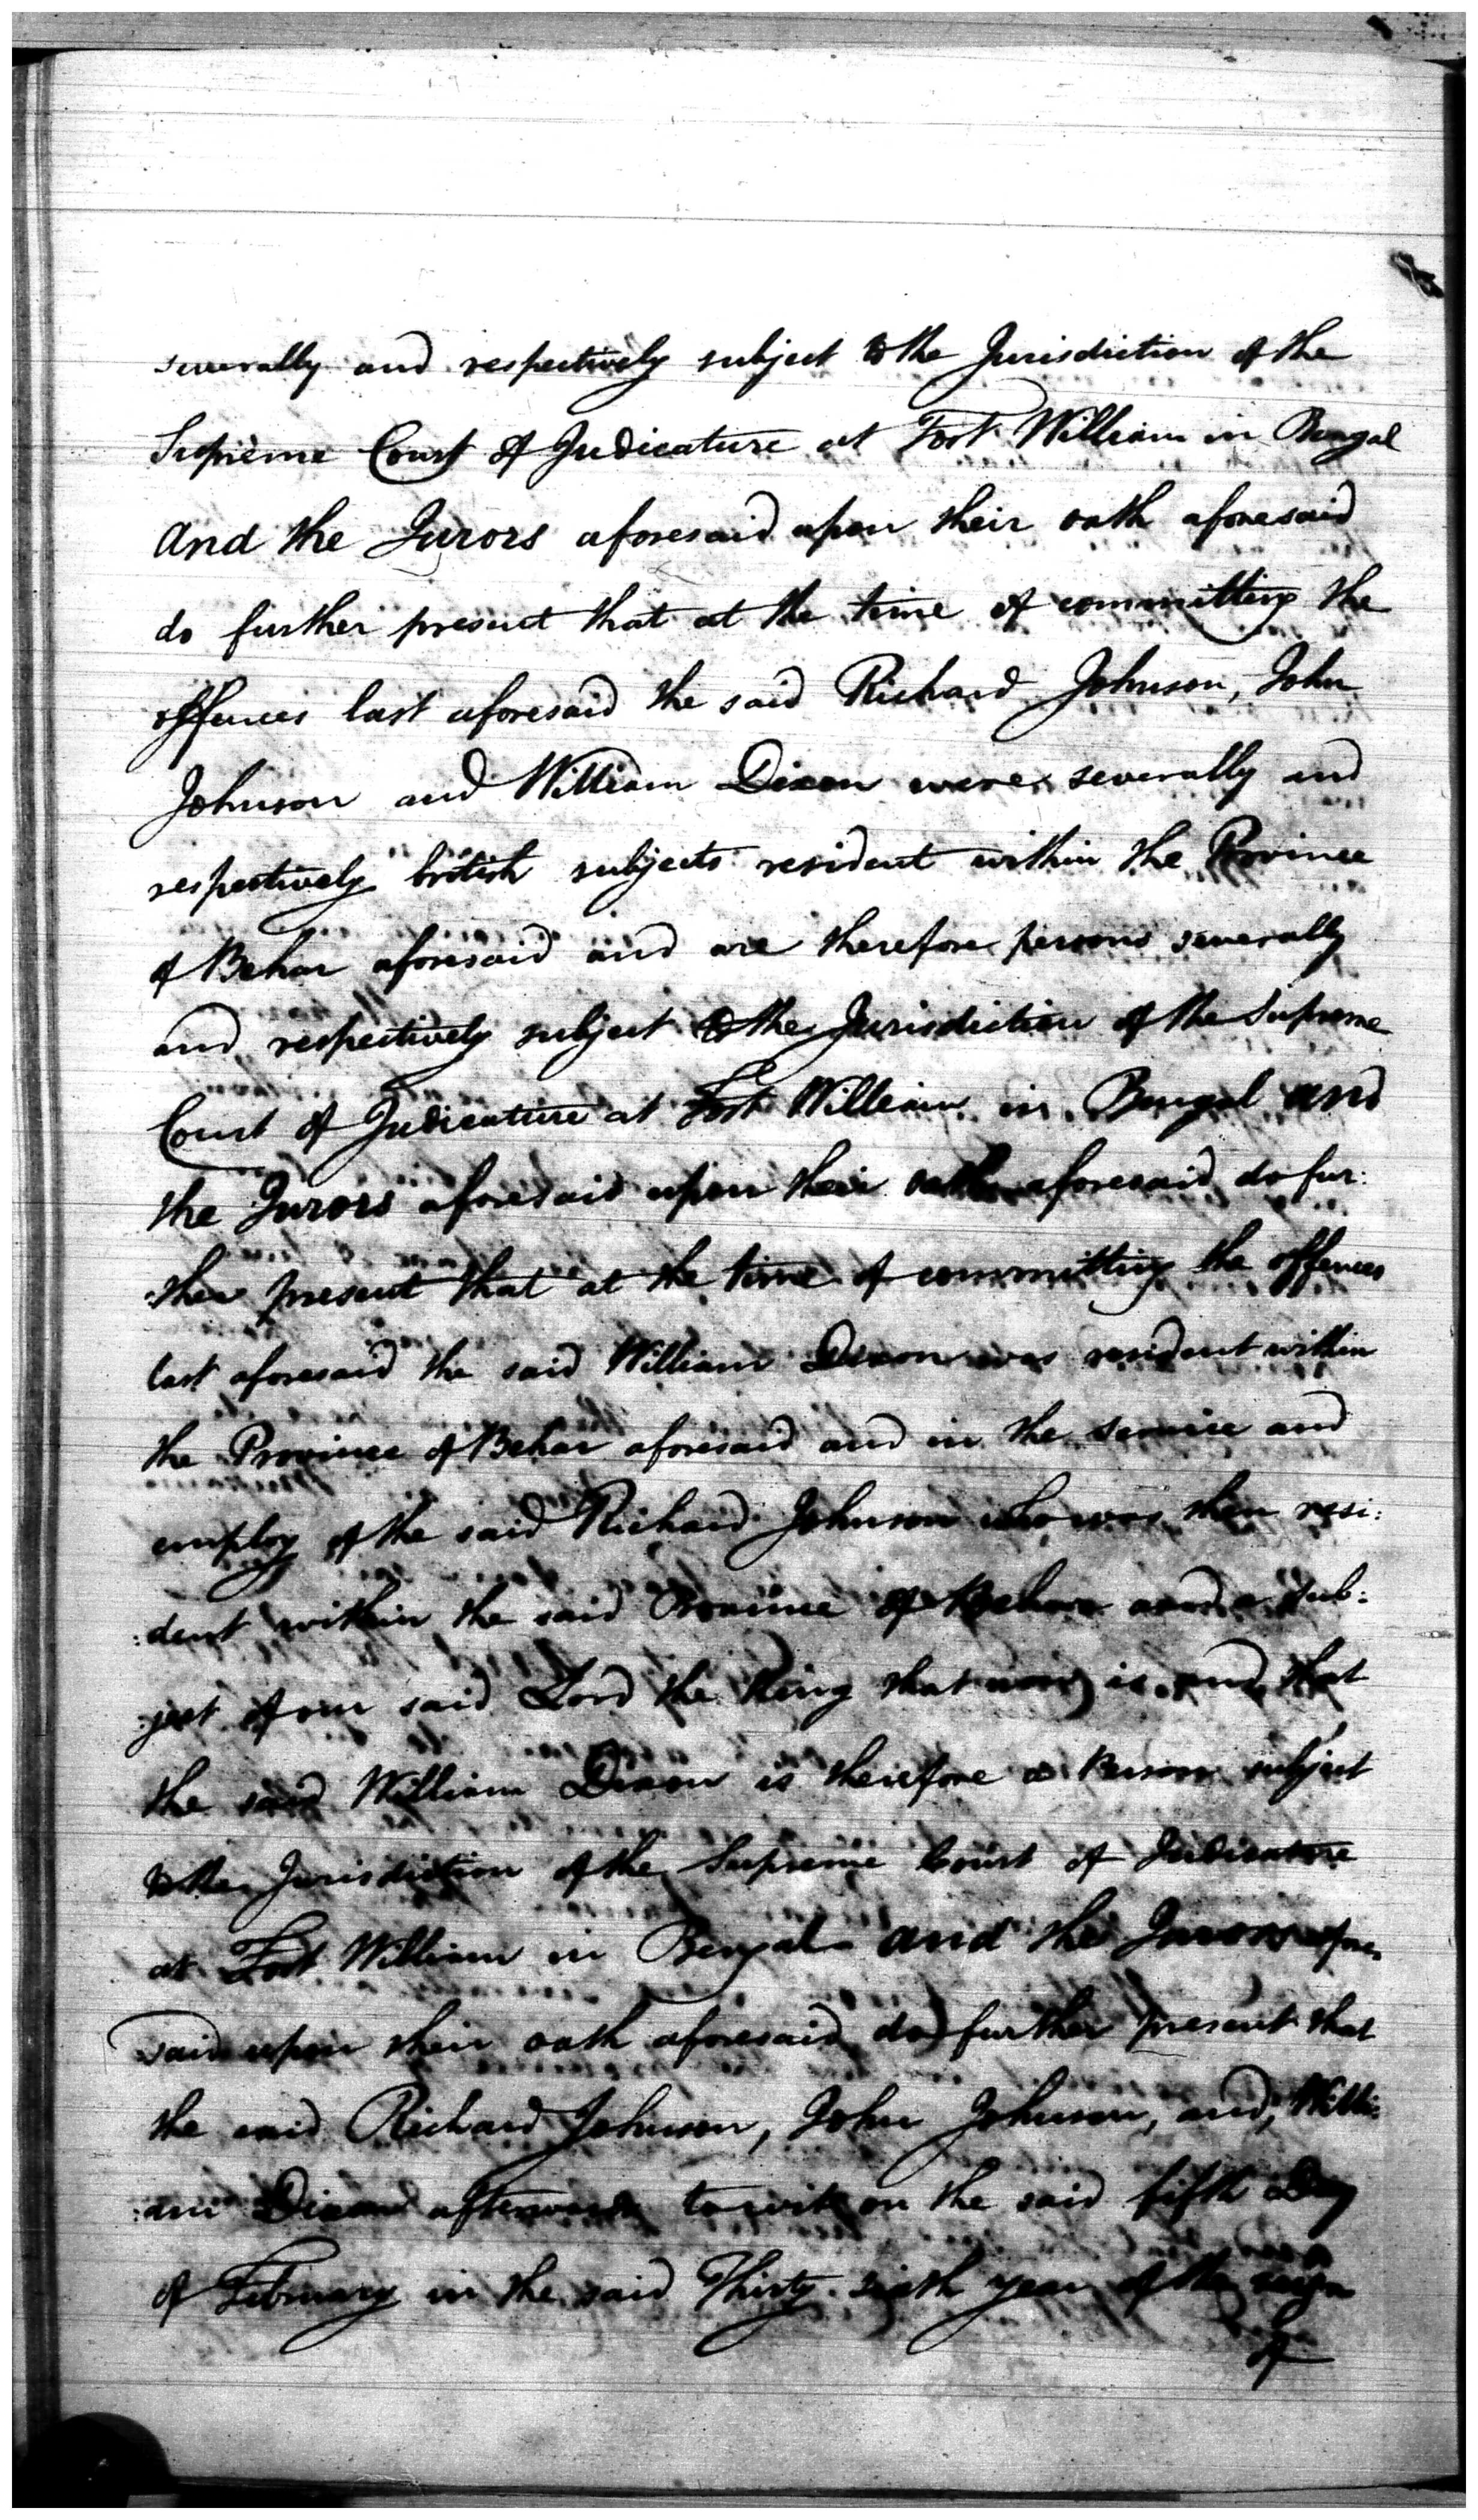 severally and respectively subject to the Jurisdiction of the
Supreme Court of Judicature at Fort William in Bengal
And the Jurors aforesaid upon their oath aforesaid
do further present that at the time of committing the
offences last aforesaid the said Richard Johnson, John
Johnson and William Dixon were severally and
respectively british subjects resident within the Province
of Behar aforesaid and are therefore persons severally
and respectively subject to the Jurisdiction of the Supreme
Court of Judicature at Fort William in Bengal and
the Jurors aforesaid upon their oath aforesaid do fur:
:ther present that at the time of committing the offences
last aforesaid the said William Dixon was resident within
the Province of Behar aforesaid and in the service and
employ of the said Richard Johnson who was then resi:
:dent within the said Province of Behar and a sub:
:ject of our said Lord the King that now is and that
the said William Dixon is therefore a Person subject
to the Jurisdiction of the Supreme Court of Judicature
at Fort William in Bengal and the Jurors afore
said upon their oath aforesaid do further present that
the said Richard Johnson, John Johnson, and, Willi:
:am Dixon afterwards to wit on the said fifth Day
of February in the said Thirty sixth year of the reign
of